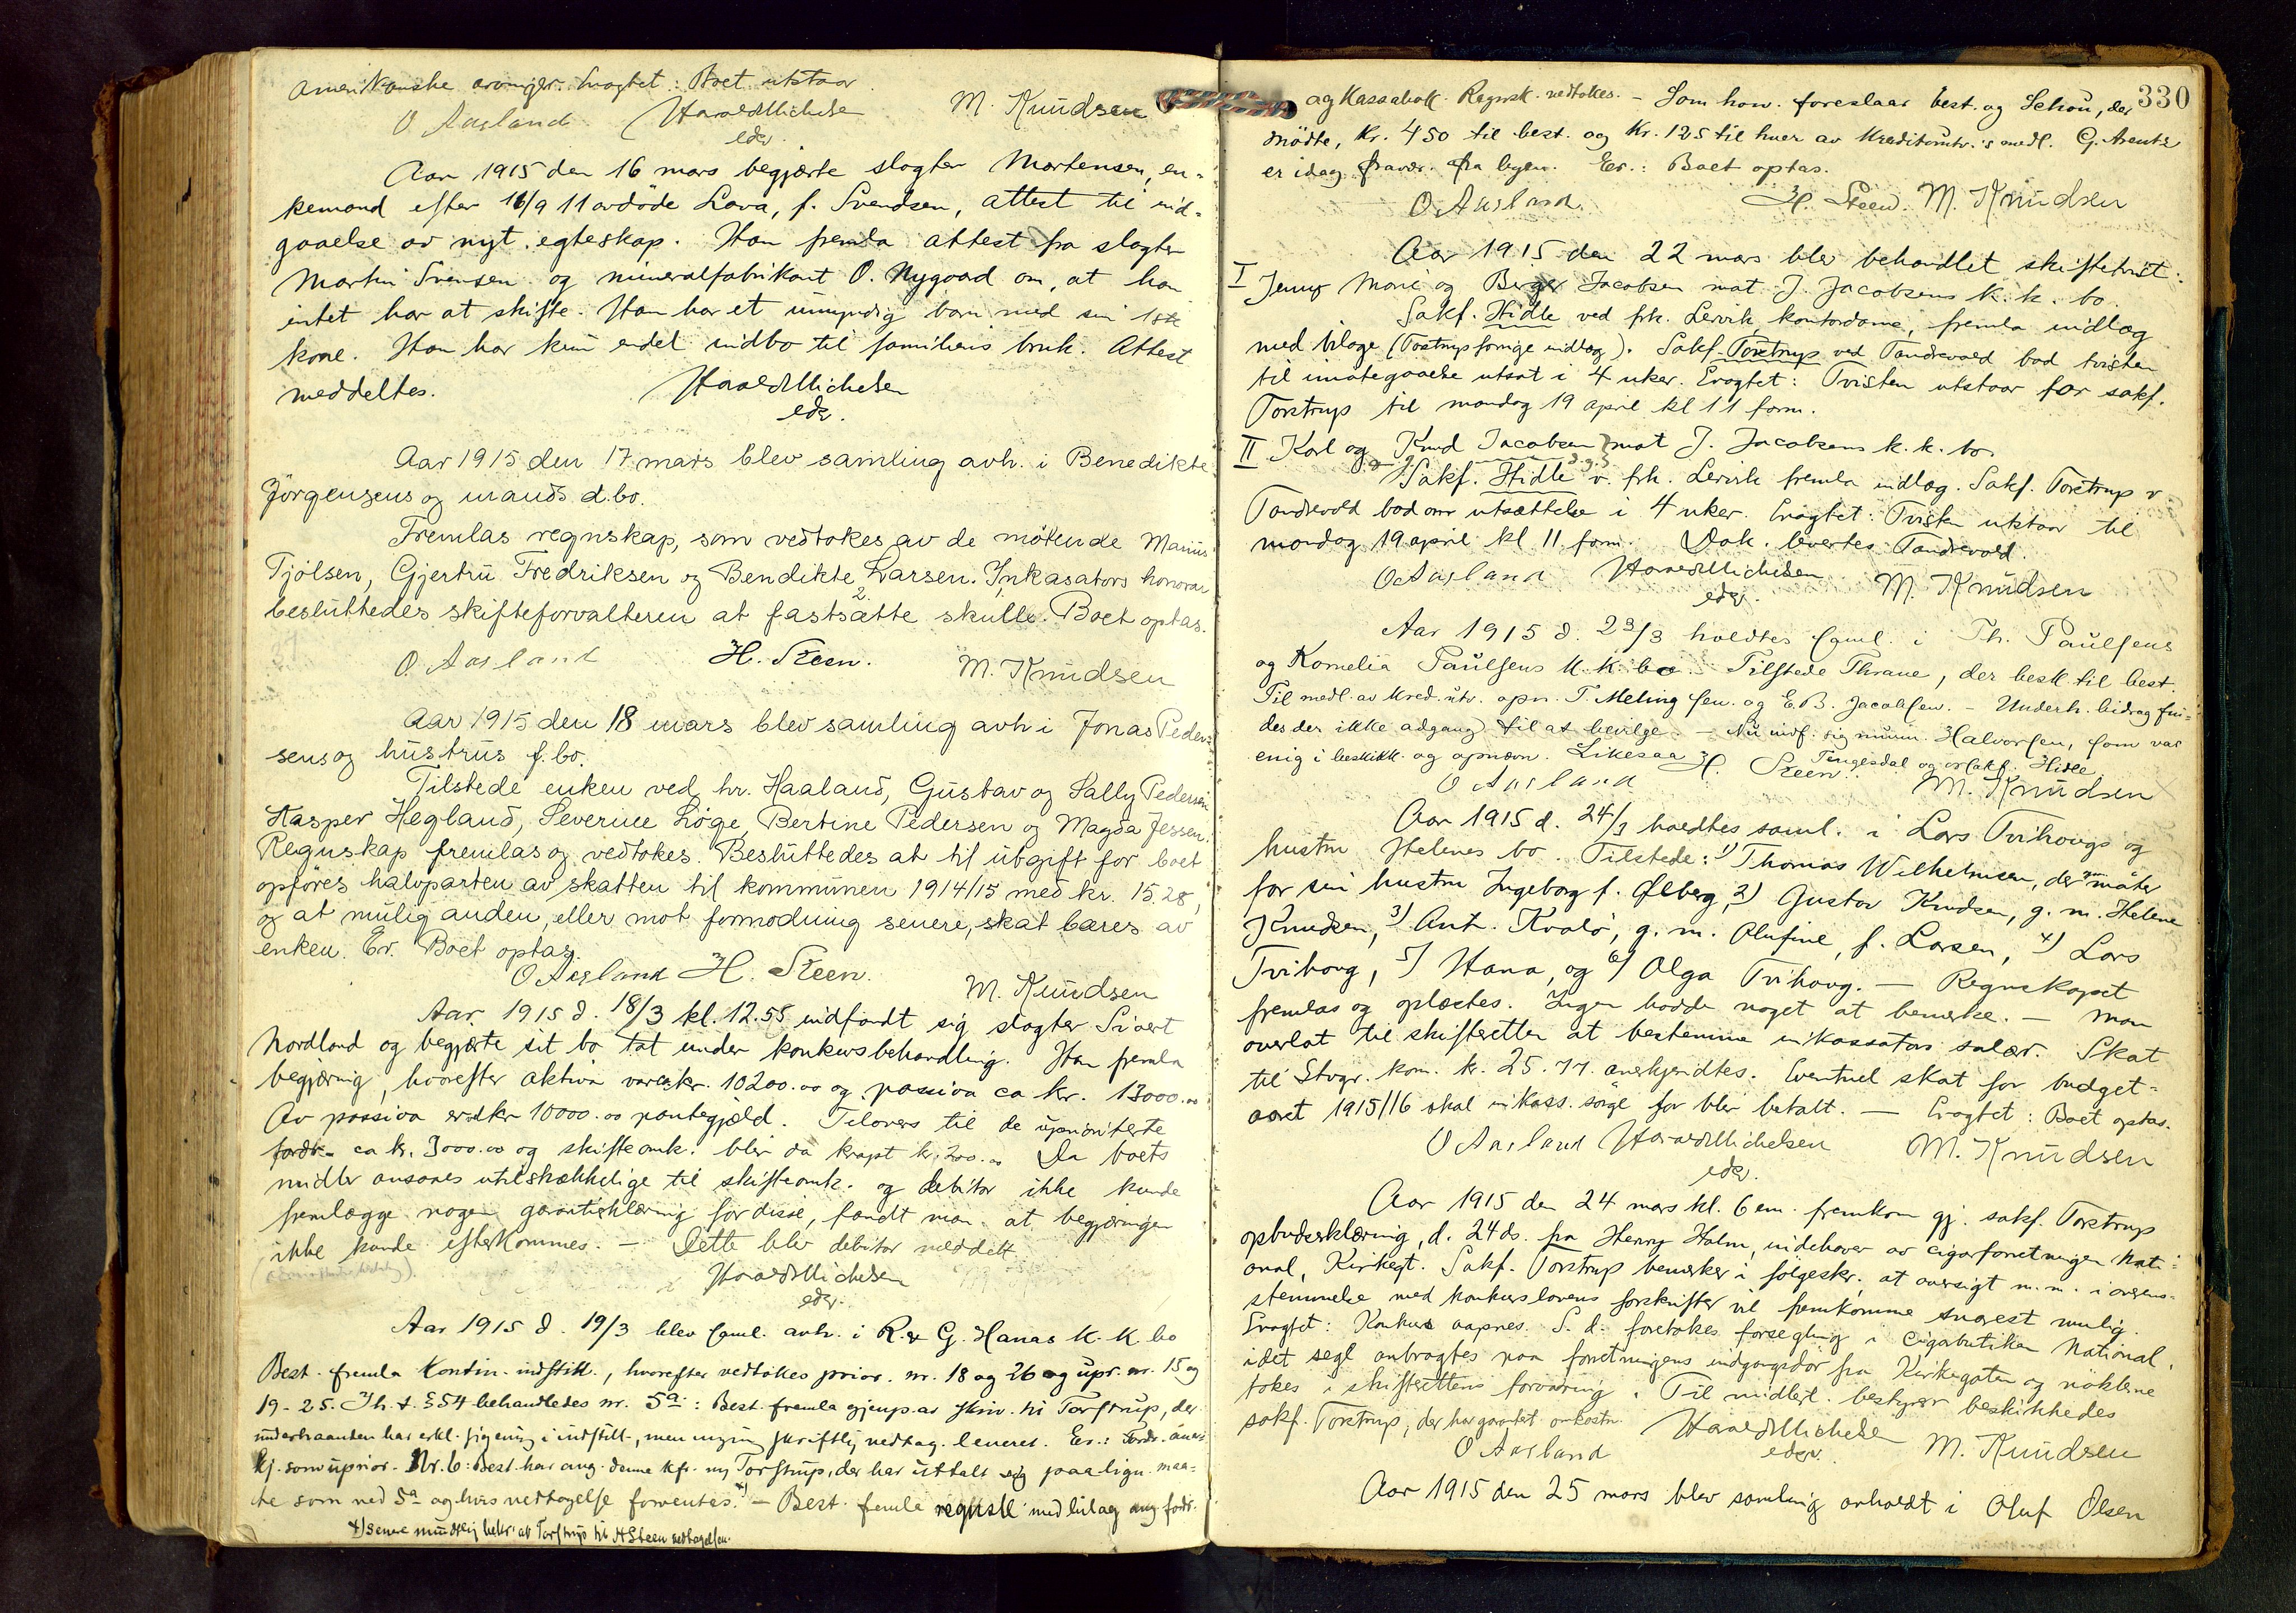 amerikanske arvinger. Eragtet: Boet utstaar
O Aasland. Harald Michelsen M. Knudsen
edsv.
Aar 1915 den 16 mars begjærte slagter Mortensen, en-
kemand efter 16/9 11 avdöde Lova, f. Svendsen, attest til ind-
gaaelse av nyt egteskap. Han fremla attest fra slagter
Martin Svensen og mineralfabrikant O. Nygaard om, at han
intet har at skifte. Han har et umyndig barn med sin 1ste
kone. Han har kun endel indbo til familiens bruk. Attest
meddeltes. Harald Michelsen
edsv.
Aar 1915 den 17 mars blev samling avh. i Benedikte
Jörgensens og mands d.bo.
Fremlas regnskap, som vedtokes av de mötende Marius
Tjölsen, Gjertru Fredriksen og Bendikte Larsen. Inkasators honorar
besluttedes skifteforvalteren at fastsætte skulle. Boet optas.
O. Aasland H. Steen. M. Knudsen
Aar 1915 den 18 mars blev samling avh i Jonas Peder-
sens og hustrus f.bo.
Tilstede enken ved hr. Haaland, Gustav og Sally Pedersen
Kasper Hegland, Severine Löge, Bertine Pedersen og Magda Jessen.
Regnskap fremlas og vedtokes. Besluttedes at til utgift for boet
opföres halvparten av skatten til kommunen 1914/15 med kr. 15.28,
og at mulig anden, eller mot formodning senere, skat bæres av
enken. Er. Boet optas.
O Aasland H. Steen. M. Knudsen
Aar 1915 d. 18/3 kl. 12.55 indfandt sig slagter Sivert
Nordland og begjærte sit bo tat under konkursbehandling. Han fremla
begjæring, hvorefter aktiva var ca kr. 10200.00 og passiva ca kr. 13000.00
Av passiva er kr 10000.00 pantegjæld. Tilovers til de uprioriterte
fordr. ca kr. 3000.00 og skifteomk. blir da knapt kr. 200.00 Da boets
midler ansaaes utilstrækkelige til skifteomk. og debitor ikke kunde
fremlægge nogen garantierklæring for disse, fandt man at begjæringen
ikke kunde efterkommes. — Dette blev debitor meddelt
Harald Michelsen
edsv.
Aar 1915 d. 19/3 blev saml. avh. i R. & G. Hanas K. K. bo
Best. fremla kontin. indstill., hvorefter vedtokes prior. nr. 18 og 26 og upr. nr. 15 og
19-25. Ih. t. § 54 behandledes nr. 5a: Best. fremla gjenp. av skriv. til Torstrup, der
underhaanden har erkl. sig enig i indstill., men ingen skriftlig vedtag. leveret. Er.: Fordr. aner-
kj. som uprior. Nr. 6: Best. har ang. denne kfr. ny Torstrup, der har uttalt sig paa lign. maa-
te som ved 5a og hvis vedtagelse forventes. x) — Best. fremla regnsk. med bilag ang. fordr.
x) senere mundtlig bekr. at Torstrup til H Steen vedtagelsen.
330
og Kassabok. Regnsk. vedtokes. — Som hon. foreslaar best. og Schou, der
mödte, Kr. 450 til best. og Kr. 125 til hver av Kreditorutv.'s medl. G. Arentz
er idag fravær. fra byen. Er.: Boet optas.
O Aasland. H. Steen. M. Knudsen
Aar 1915 den 22 mars blev behandlet skiftetvist:
I Jenny Marie og Berger Jacobsen mot J. Jacobsens k.k. bo.
Sakf. Hidle ved frk. Lervik, kontordame, fremla indlæg
med bilage (Torstrups forrige indlæg). Sakf. Torstrup ved Tandrevold bad tvisten
til imøtegaaelse utsat i 4 uker. Eragtet: Tvisten utstaar for sakf.
Torstrup til mandag 19 april kl 11 form.
II Karl og Knud Jacobsen mot J. Jacobsens k. k. bo.
Sakf. Hidle v. frk. Lervik fremla indlæg. Sakf. Torstrup v
Tandrevold bad om utsættelse i 4 uker. Eragtet: Tvisten utstaar til
mandag 19 april kl 11 form. Dok. levertes Tandrevold.
O Aasland Harald Michelsen M. Knudsen
edsv.
Aar 1915 d. 23/3 holdtes saml. i Th. Paulsens
og Kornelia Paulsens K. K. bo. Tilstede Thrane, der besk. til best.
Til medl. av kred.utv. opn. T. Meling sen. og E.B. Jacobsen. — Underh. bidrag fin-
des der ikke adgang til at bevilge. — Nu indf. sig Halvorsen, som var
enig i beskikk. og opnævn. Likesaa Tengesdal og orsakf. Hidle
O Aasland H. Steen M. Knudsen
Aar 1915 d. 24/3 holdtes saml. i Lars Tvihovgs og
hustru Helenes bo. Tilstede: 1) Thomas Wilhelmsen, der møter
for sin hustru Ingeborg f. Ølberg, 2) Gustav Knudsen, g. m. Helene
Knudsen, 3) Ant. Kvalö, g. m. Olufine, f. Larsen, 4) Lars
Tvihovg, 5) Hana, og 6) Olga Tvihovg. — Regnskapet
fremlas og oplæstes. Ingen hadde noget at bemerke. — Man
overlot til skifteretten at bestemme inkassators salær. Skat
til Stvgr. kom. kr. 25.77 anerkjendtes. Eventuel skat for budget-
aaret 1915/16 skal inkass. sörge for blir betalt. — Eragtet: Boet optas.
O Aasland Harald Michelsen M. Knudsen
edsv.
Aar 1915 den 24 mars kl. 6 em. fremkom gj. sakf. Torstrup
opbudserklæring, d. 24 ds. fra Henry Holm, indehaver av cigarforretningen Nati-
onal, Kirkegt. Sakf. Torstrup bemerker i følgeskr. at oversigt m. m. i overens-
stemmelse med konkurslovens forskrifter vil fremkomme snarest mulig.
Eragtet: Konkurs aapnes. S. d. foretokes forsegling i Cigarbutiken National,
idet segl anbragtes paa forretningens indgangsdør fra Kirkegaten og nöklene
tokes i skifterettens forvaring. Til midlert. bestyrer beskikkedes
sakf. Torstrup, der har garantert omkostn. Harald Michelsen
O Aasland edsv. M. Knudsen
Aar 1915 den 25 mars blev samling avholdt i Oluf Olsen